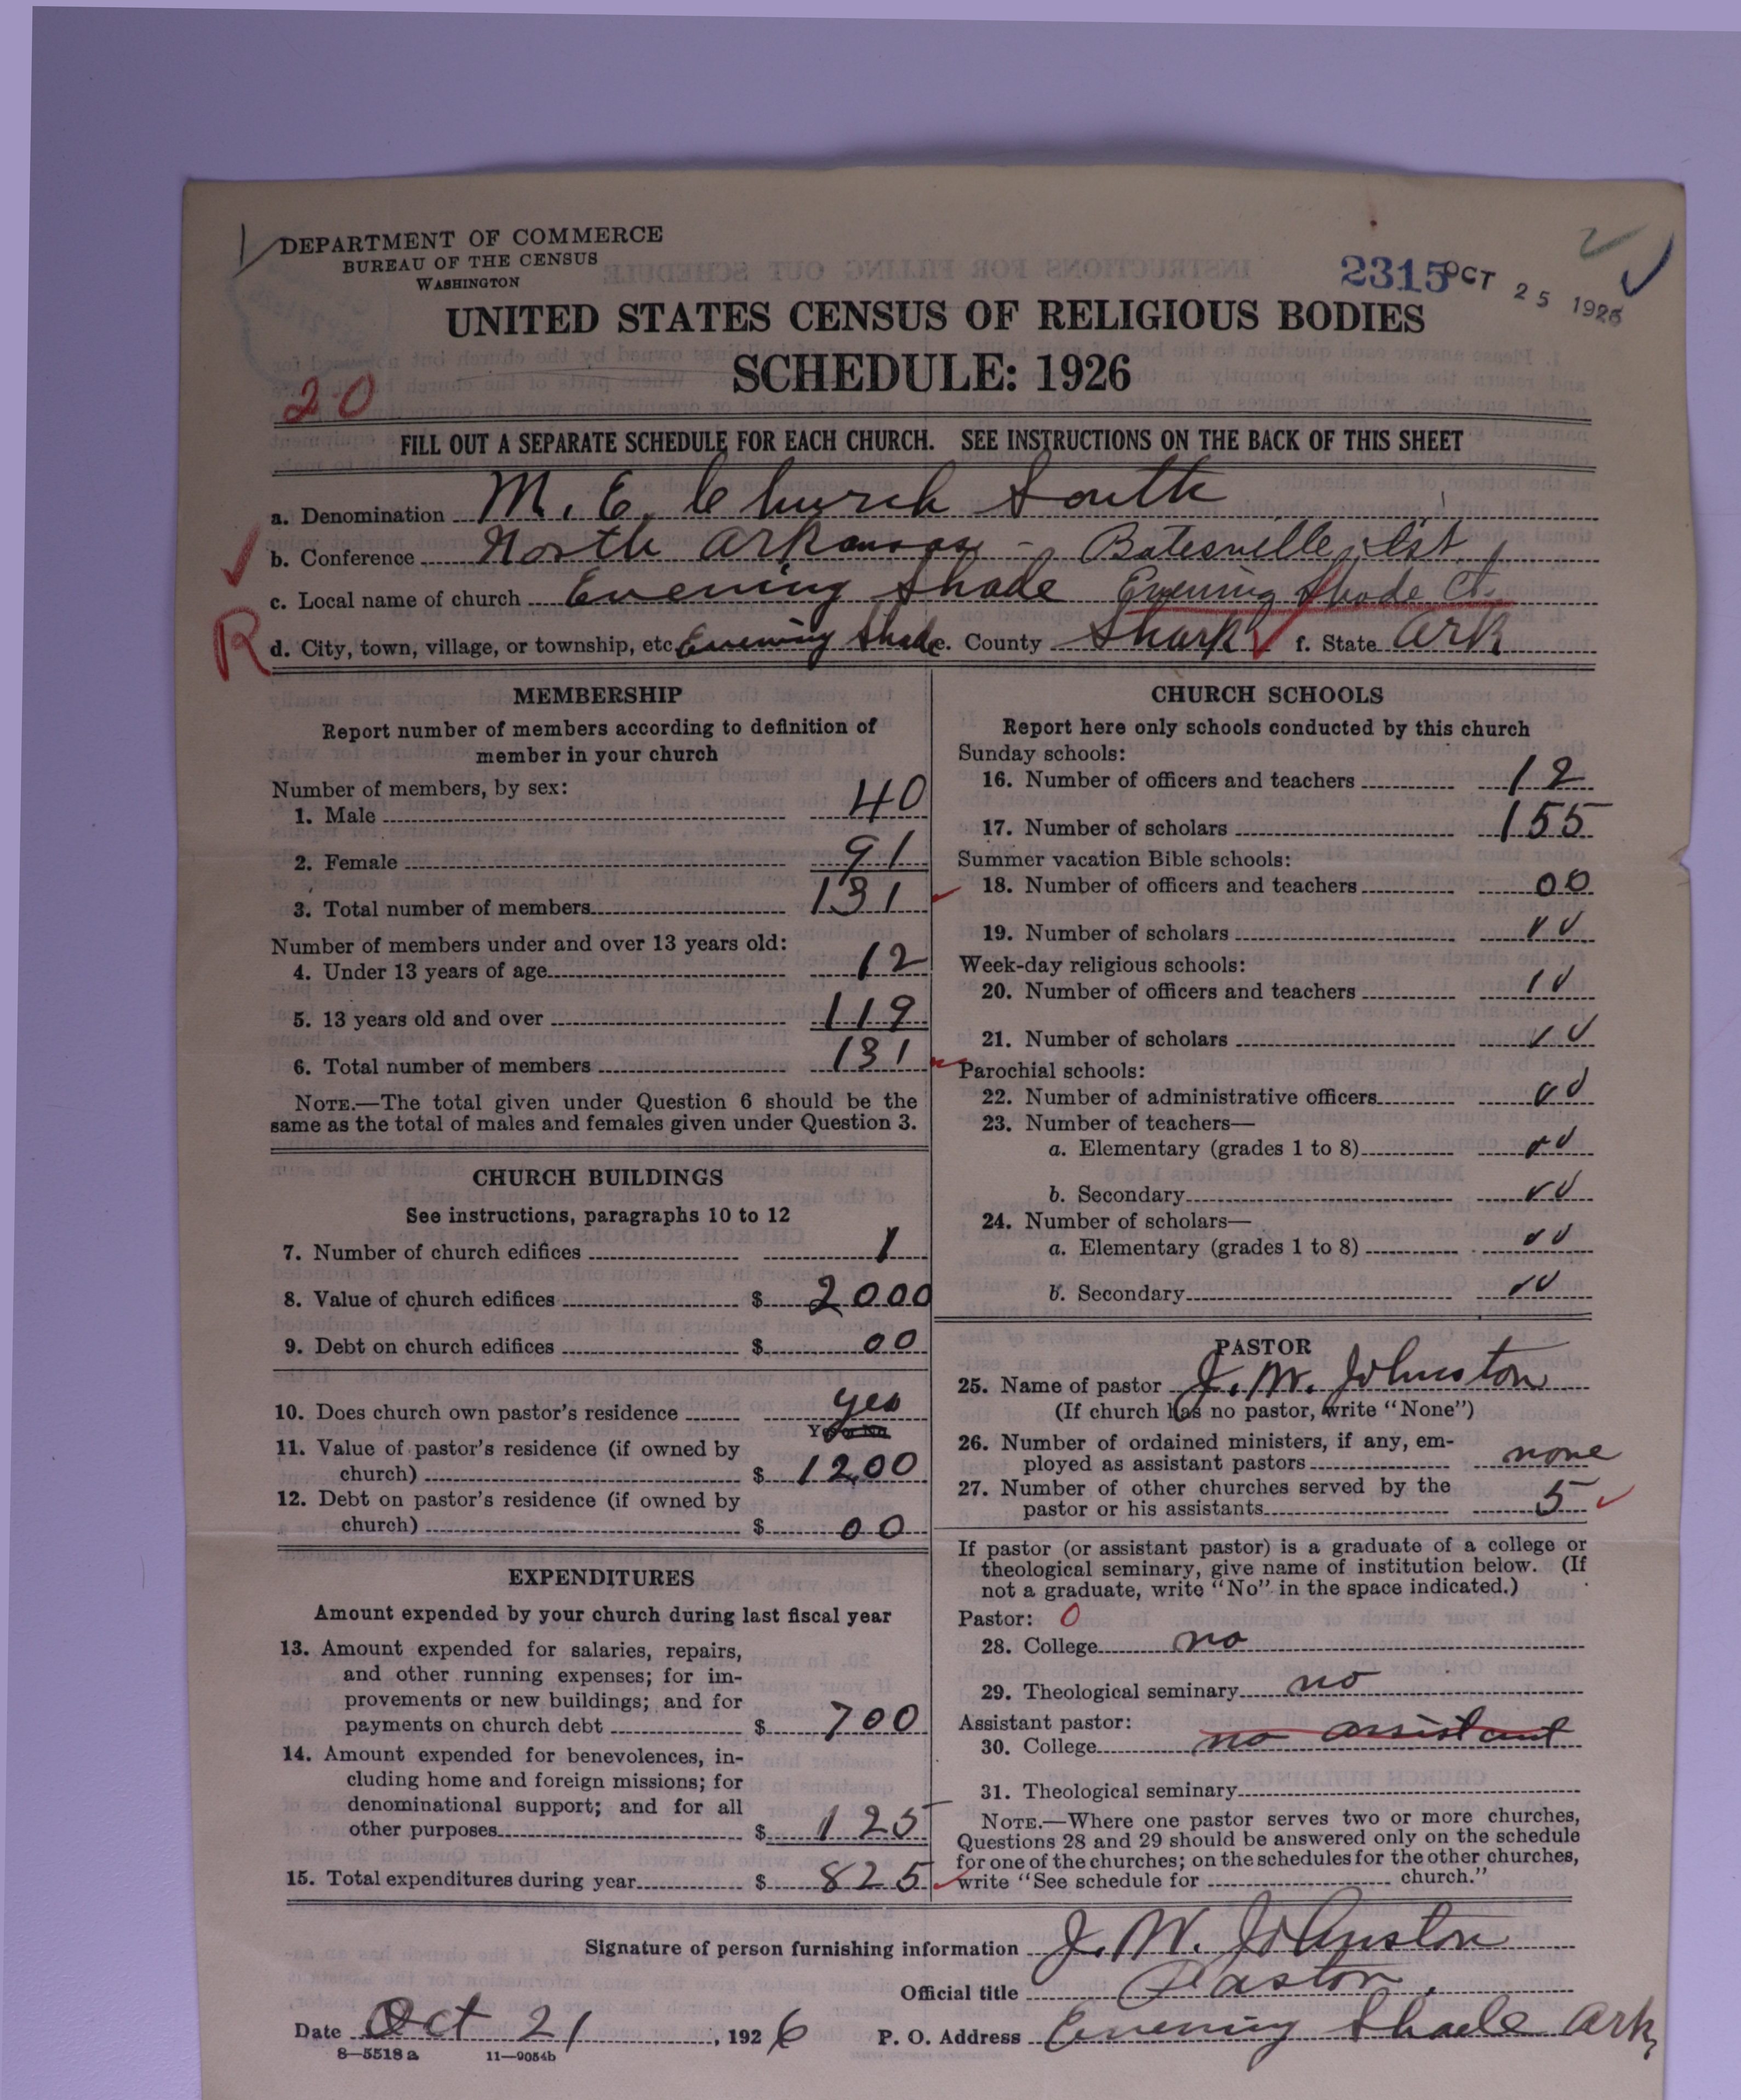 DEPARTMENT OF COMMERCE
BUREAU OF THE CENSUS
WASHINGTON
2315 OCT 25 1926
UNITED STATES CENSUS OF RELIGIOUS BODIES
SCHEDULE: 1926
20
FILL OUT A SEPARATE SCHEDULE FOR EACH CHURCH. SEE INSTRUCTIONS ON THE BACK OF THIS SHEET
a. Denomination M. E. Church South
b. Conference North Arkansas - Batesville Dist.
c. Local name of church Evening Shade Evening Shade Ct.
R
d. City, town, village, or township, etc. Evening Shade e. County Sharp f. State Ark
MEMBERSHIP
Report number of members according to definition of
member in your church
Number of members, by sex:
1. Male 40
2. Female 91
3. Total number of members 131
Number of members under and over 13 years old:
4. Under 13 years of age 12
5. 13 years old and over 119
6. Total number of members 131
NOTE.—The total given under Question 6 should be the
same as the total of males and females given under Question 3.
CHURCH BUILDINGS
See instructions, paragraphs 10 to 12
7. Number of church edifices 1
8. Value of church edifices $ 2000
9. Debt on church edifices $ 00
10. Does church own pastor's residence yes
Yes or No
11. Value of pastor's residence (if owned by
church) $ 1200
12. Debt on pastor's residence (if owned by
church) $ 00
EXPENDITURES
Amount expended by your church during last fiscal year
13. Amount expended for salaries, repairs,
and other running expenses; for im-
provements or new buildings; and for
payments on church debt $ 700
14. Amount expended for benevolences, in-
cluding home and foreign missions; for
denominational support; and for all
other purposes $ 125
15. Total expenditures during year $ 825
CHURCH SCHOOLS
Report here only schools conducted by this church
Sunday schools:
16. Number of officers and teachers 12
17. Number of scholars 155
Summer vacation Bible schools:
18. Number of officers and teachers 00
19. Number of scholars
Week-day religious schools:
20. Number of officers and teachers
21. Number of scholars
Parochial schools:
22. Number of administrative officers
23. Number of teachers—
a. Elementary (grades 1 to 8)
b. Secondary
24. Number of scholars—
a. Elementary (grades 1 to 8)
b. Secondary
PASTOR
25. Name of pastor J. W. Johnston
(If church has no pastor, write "None")
26. Number of ordained ministers, if any, em-
ployed as assistant pastors none
27. Number of other churches served by the
pastor or his assistants 5
If pastor (or assistant pastor) is a graduate of a college or
theological seminary, give name of institution below. (If
not a graduate, write "No" in the space indicated.)
Pastor: 0
28. College no
29. Theological seminary no
Assistant pastor:
30. College no assistant
31. Theological seminary
NOTE.—Where one pastor serves two or more churches,
Questions 28 and 29 should be answered only on the schedule
for one of the churches; on the schedules for the other churches,
write "See schedule for church."
Signature of person furnishing information J. W. Johnston
Official title Pastor.
Date Oct 21, 1926 P. O. Address Evening Shade Ark,
8—5518a 11—9054b